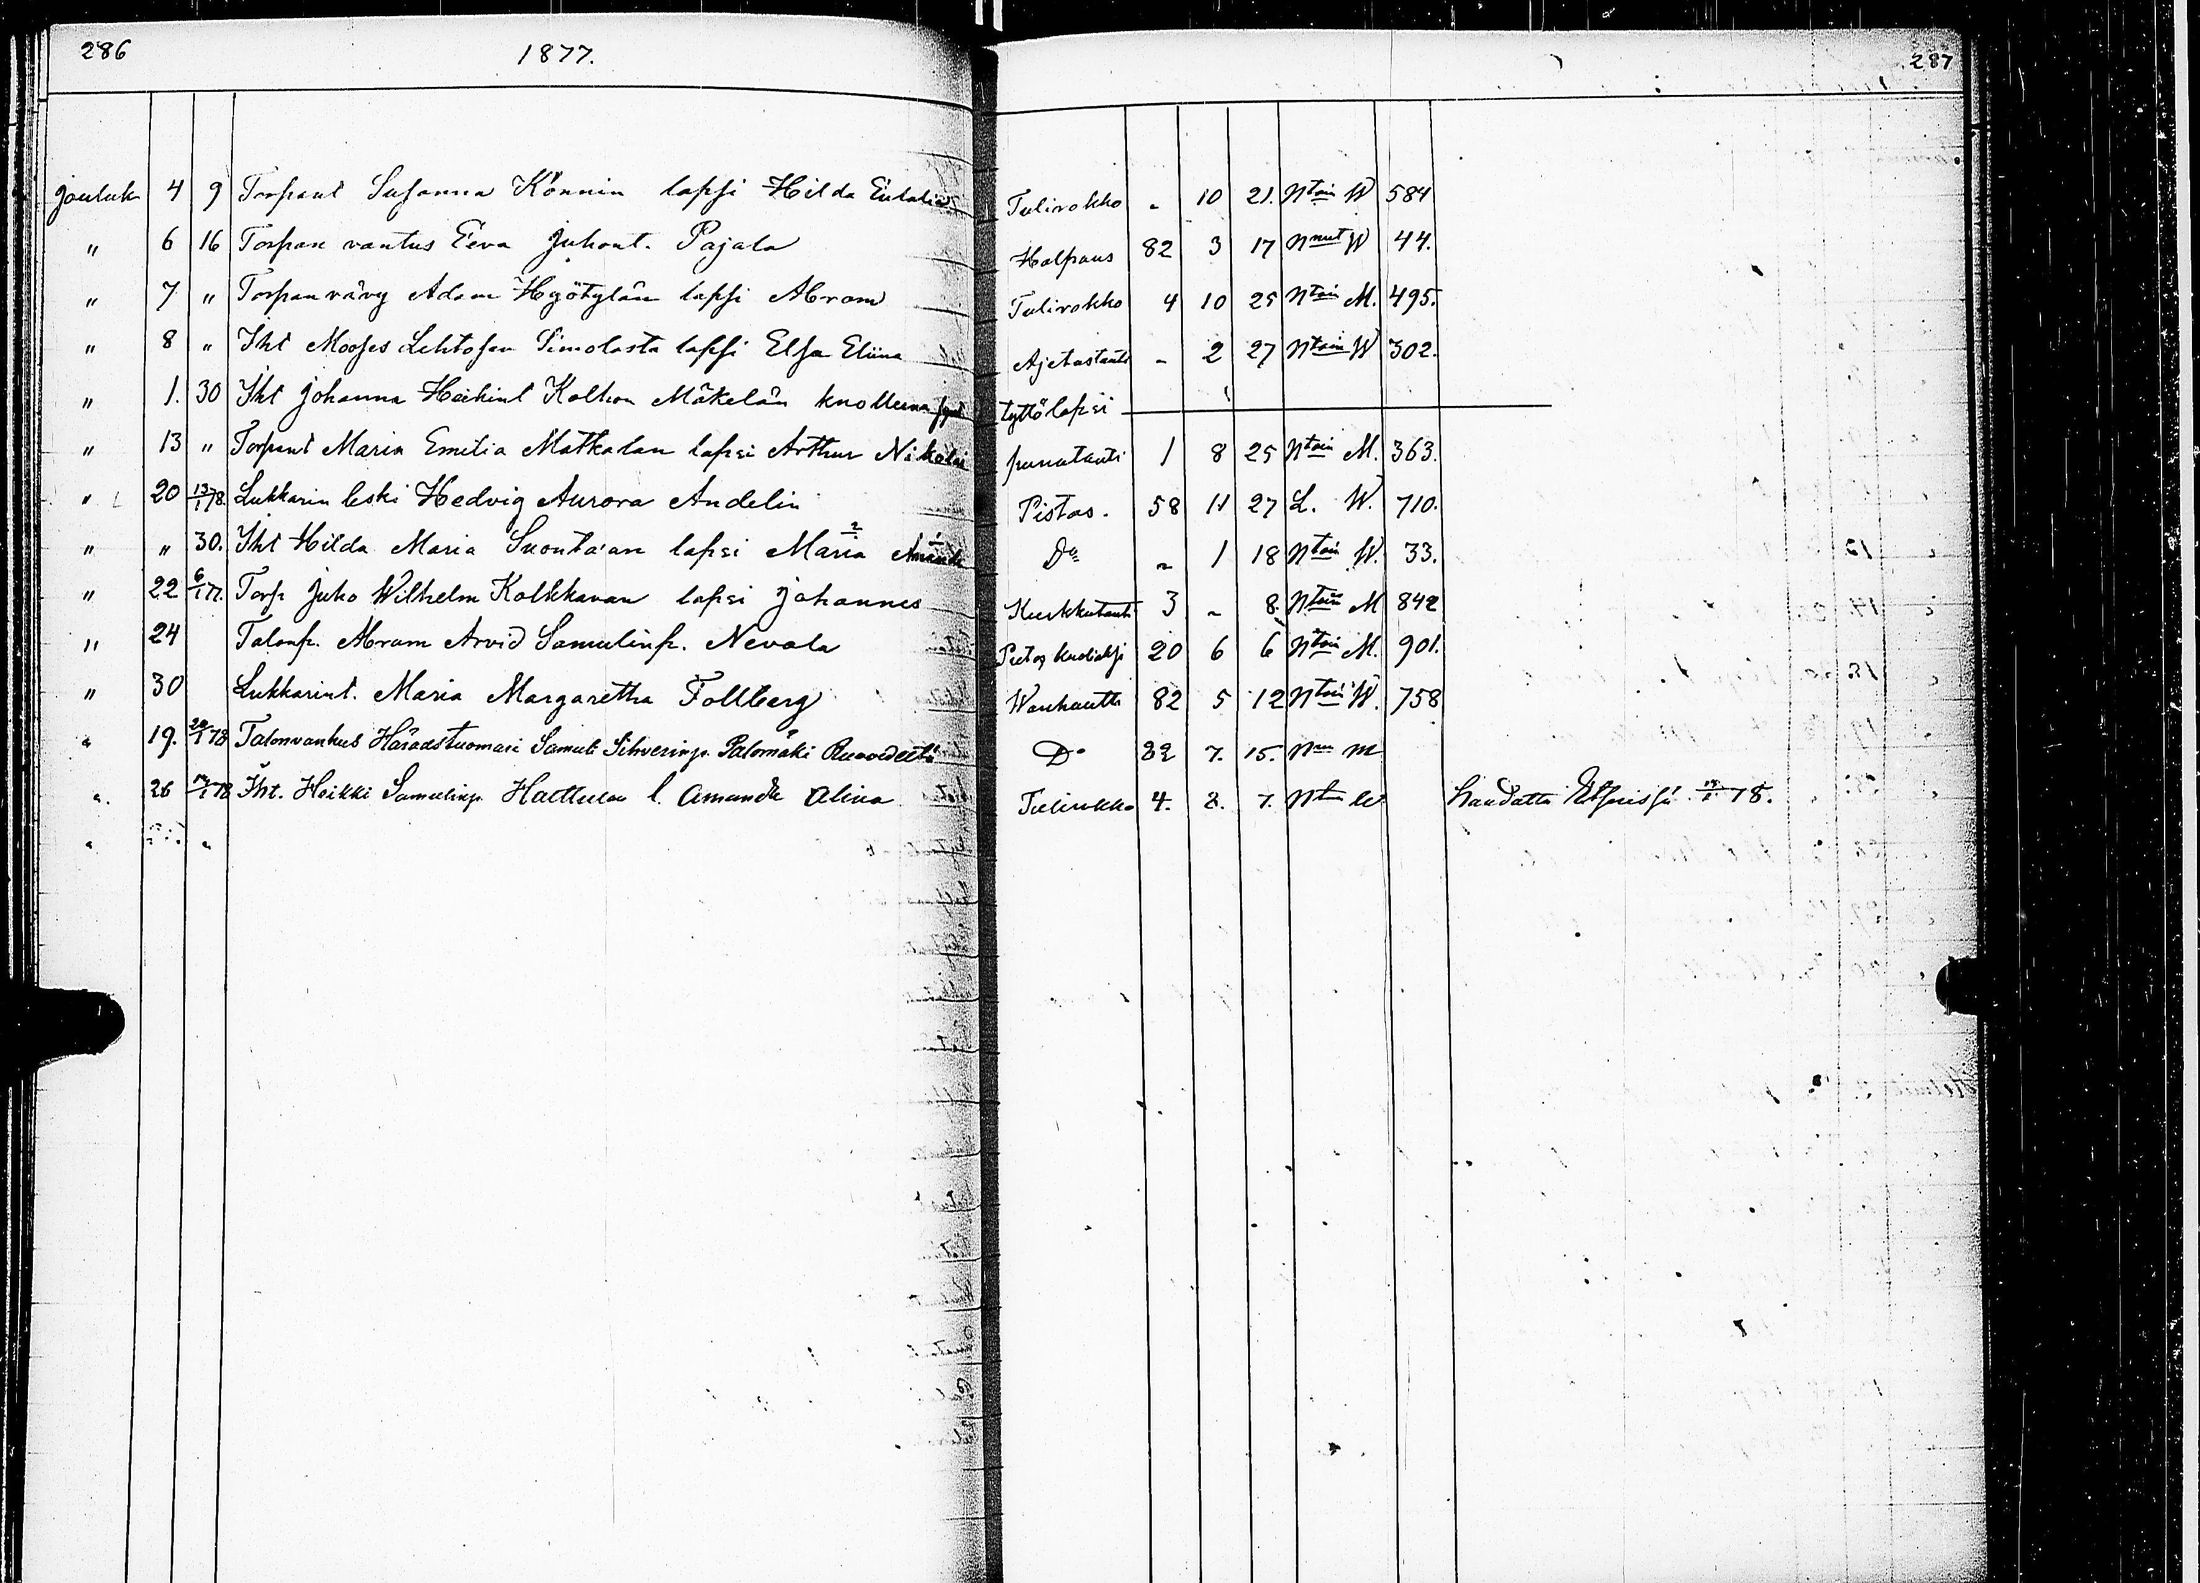 286 1877. 287
Jouluk 4 9 Torpant Susanna Könnin lapsi Hilda Eulalia Tulirokko - 10 21. Ntoin W 584
" 6 16 Torpan vanhus Eeva Juhont. Pajala Halpaus 82 3 17 Nnut W 44.
" 7 " Torpanvävy Adam Hyötylän lapsi Abram Tulirokko 4 10 25 Ntoin M. 495.
" 8 " Iht Mooses Lehtosen Simolasta lapsi Elsa Eliina Ajetustauti - 2 27 Ntoin W 302.
" 1. 30 Iht Johanna Heikint Kalhon Mäkelän kuolleena synt tyttölapsi
" 13 " Torpant Maria Emilia Matkalan lapsi Arthur Nikolai punatauti 1 8 25 Ntoin M. 363.
" 20 13/1 78. Lukkarin leski Hedvig Aurora Andelin Pistos. 58 11 27 L. W. 710.
" " 30. Iht Hilda Maria Suontaan lapsi Maria Amanda Do - 1 18 Ntoin W. 33.
" 22 6/1 77. Torp Juho Wilhelm Kolkkavan lapsi Johannes Kurkkutauti 3 - 8. Ntoin M 842
" 24 Talonp. Abram Arvid Samulinp. Nevala 20 6 6 Ntoin M. 901.
" 30 Lukkarint. Maria Margaretha Follberg Wanhuutta 82 5 12 Ntoin W. 758
" 19. 20/1 78 Talonvanhus Häradstuomari Samuli Sihverinp. Palomäki Do 82 7. 15. Nnu M
" 26 /1 78 Iht. Heikki Samulinp. Hattulan l. Amanda Alina Tulirokko 4. 8. 7. Ntoin W haudattu 78.
" "